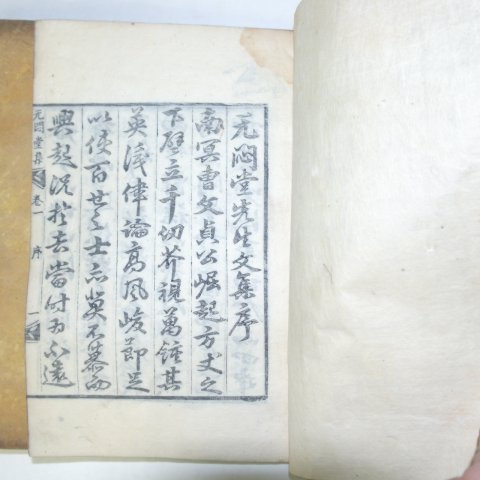 无悶堂先生文集序
南冥曺文貞公崛起方丈之
下壁立千仞芥視萬鍾其
英識偉論高風峻節足
以使百世之士亦莫不慕而
興起况於去當時不遠
无悶堂集 卷一 序 一